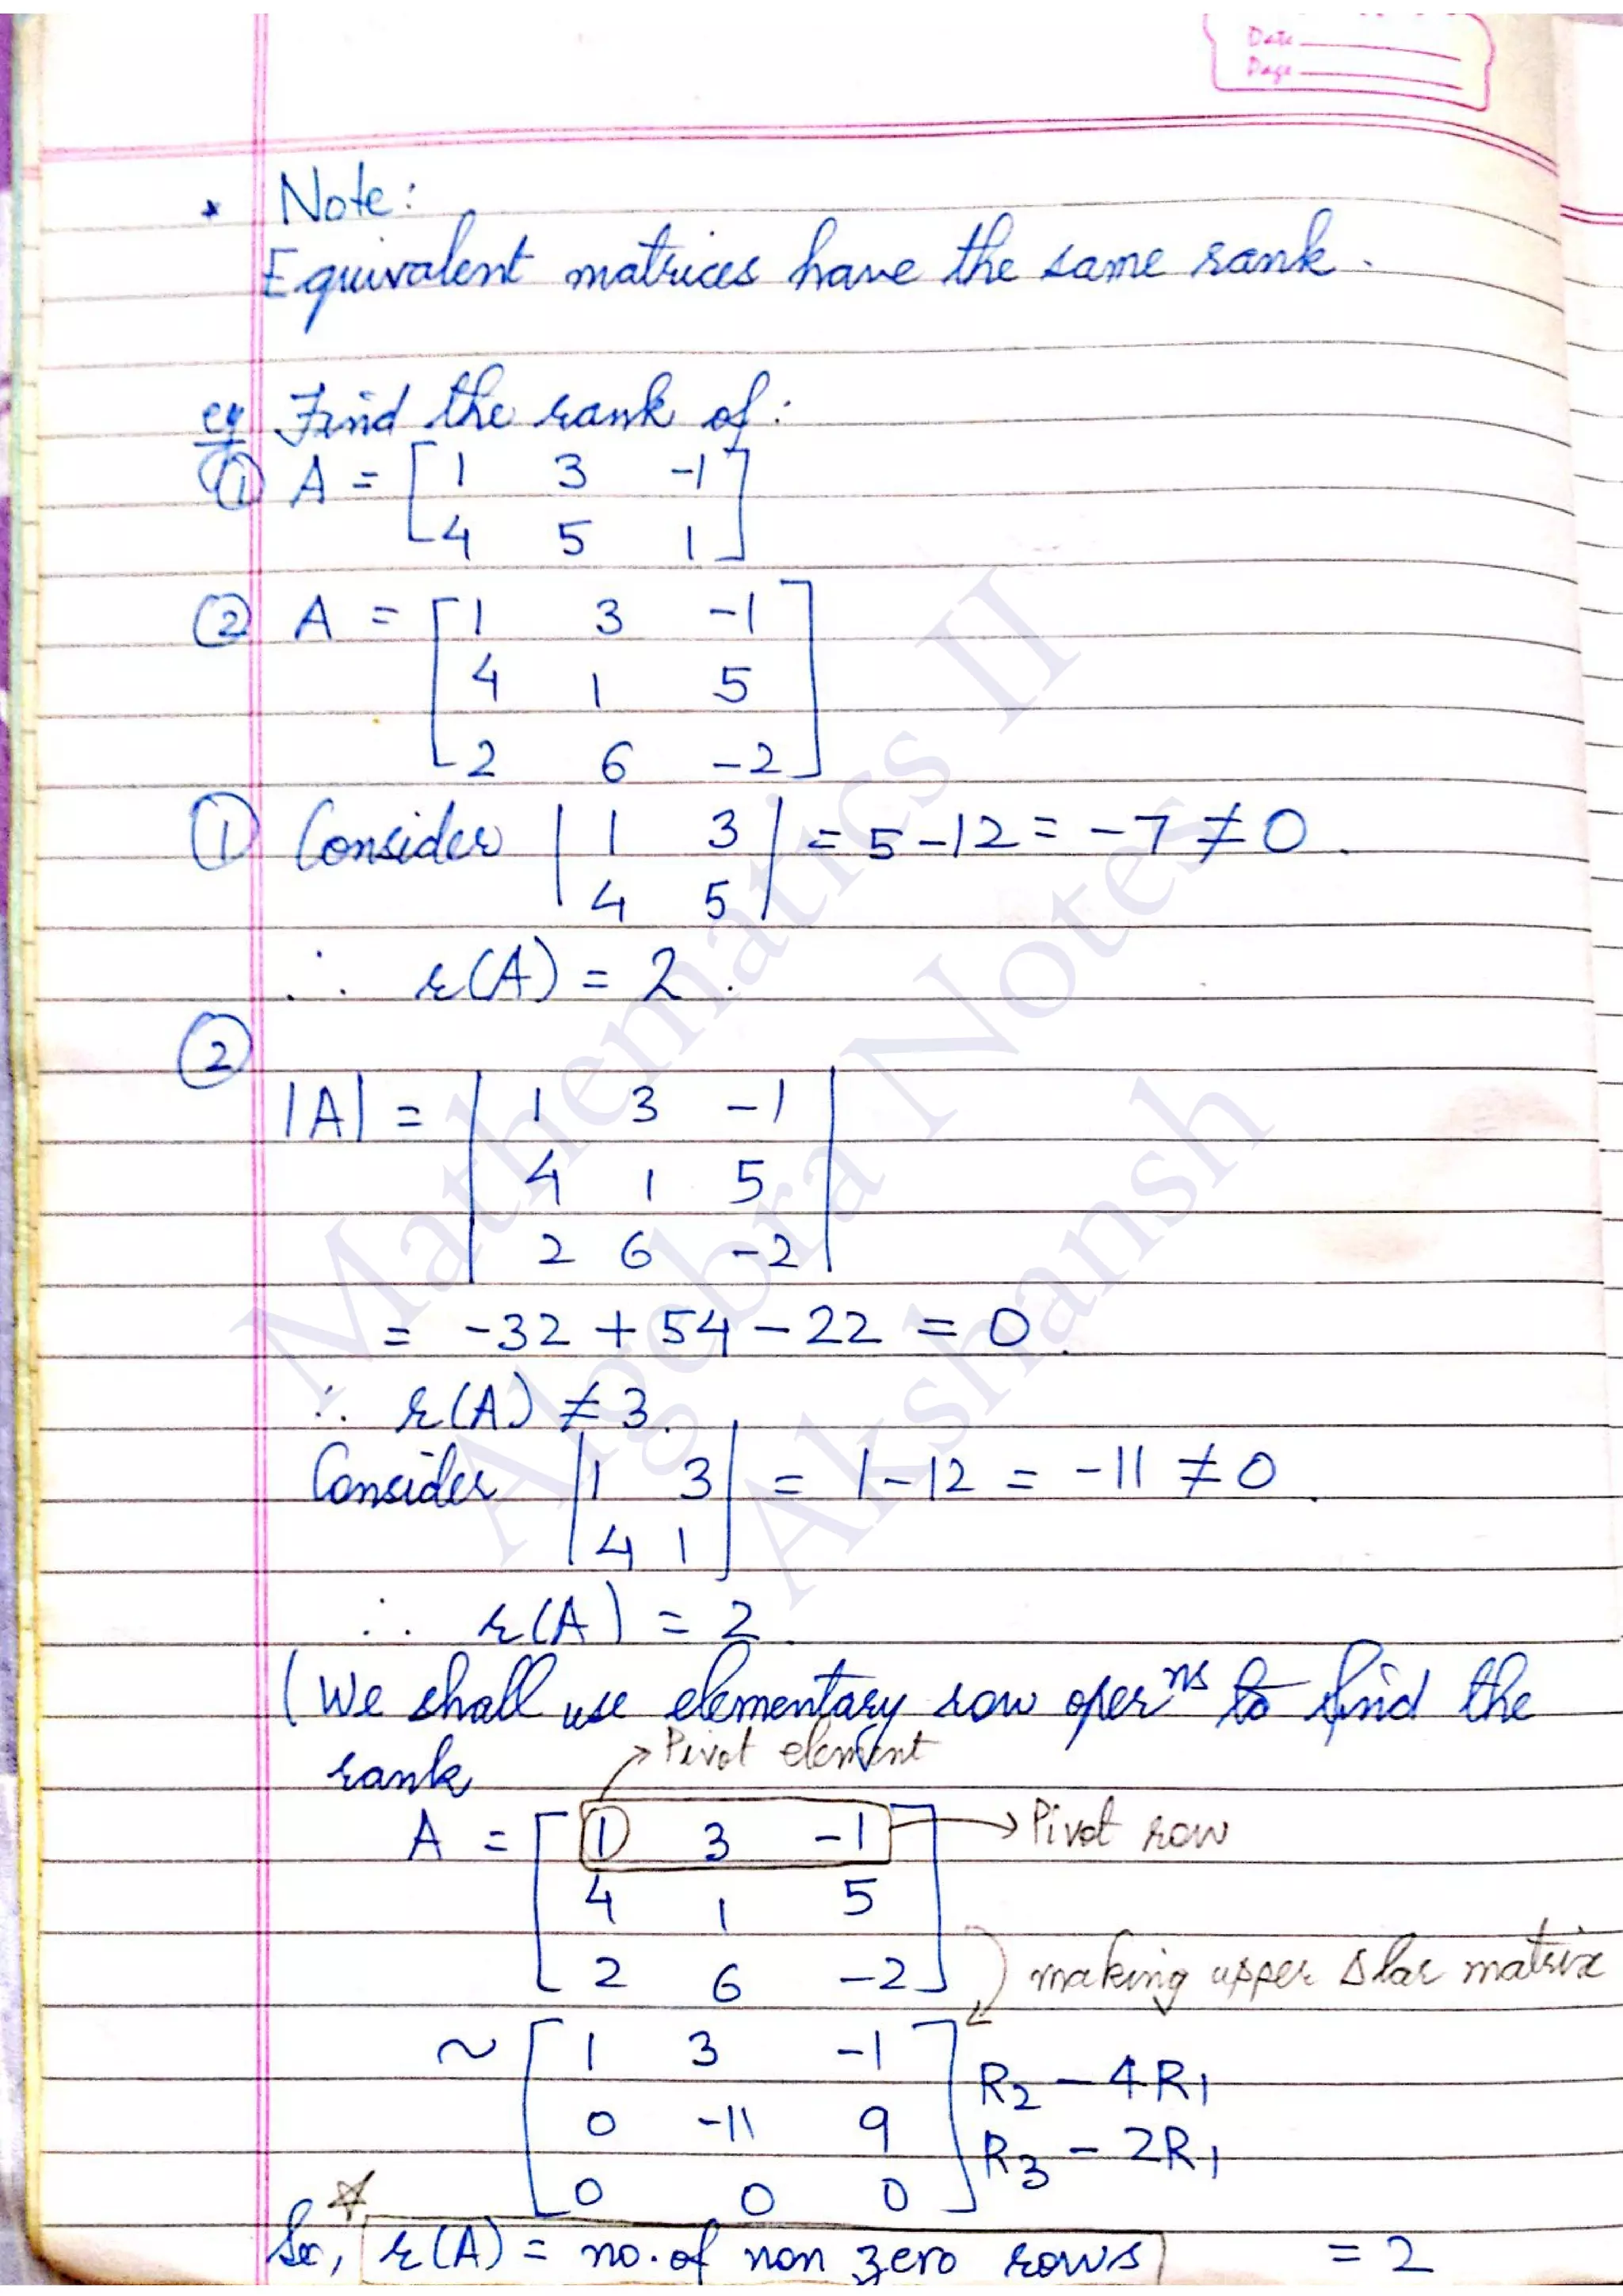 Date
Page
* Note:
Equivalent matrices have the same rank.
eg Find the rank of:
① A = [ 1 3 -1
4 5 1 ]
② A = [ 1 3 -1
4 1 5
2 6 -2 ]
① Consider | 1 3 | = 5-12 = -7 ≠ 0.
4 5
∴ r(A) = 2.
②
|A| = | 1 3 -1 |
4 1 5
2 6 -2
= -32 + 54 - 22 = 0.
∴ r(A) ≠ 3.
Consider | 1 3 | = 1-12 = -11 ≠ 0.
4 1
∴ r(A) = 2.
(We shall use elementary row oper^ns to find the
rank
→ Pivot element
A = [ 1 3 -1 → Pivot row
4 1 5
2 6 -2 ]
making upper Δlar matrix
~ [ 1 3 -1
0 -11 9
0 0 0 ]
R2 - 4R1
R3 - 2R1
☆
So, r(A) = no. of non zero rows = 2
Mathematics II
Algebra Notes
Akshansh